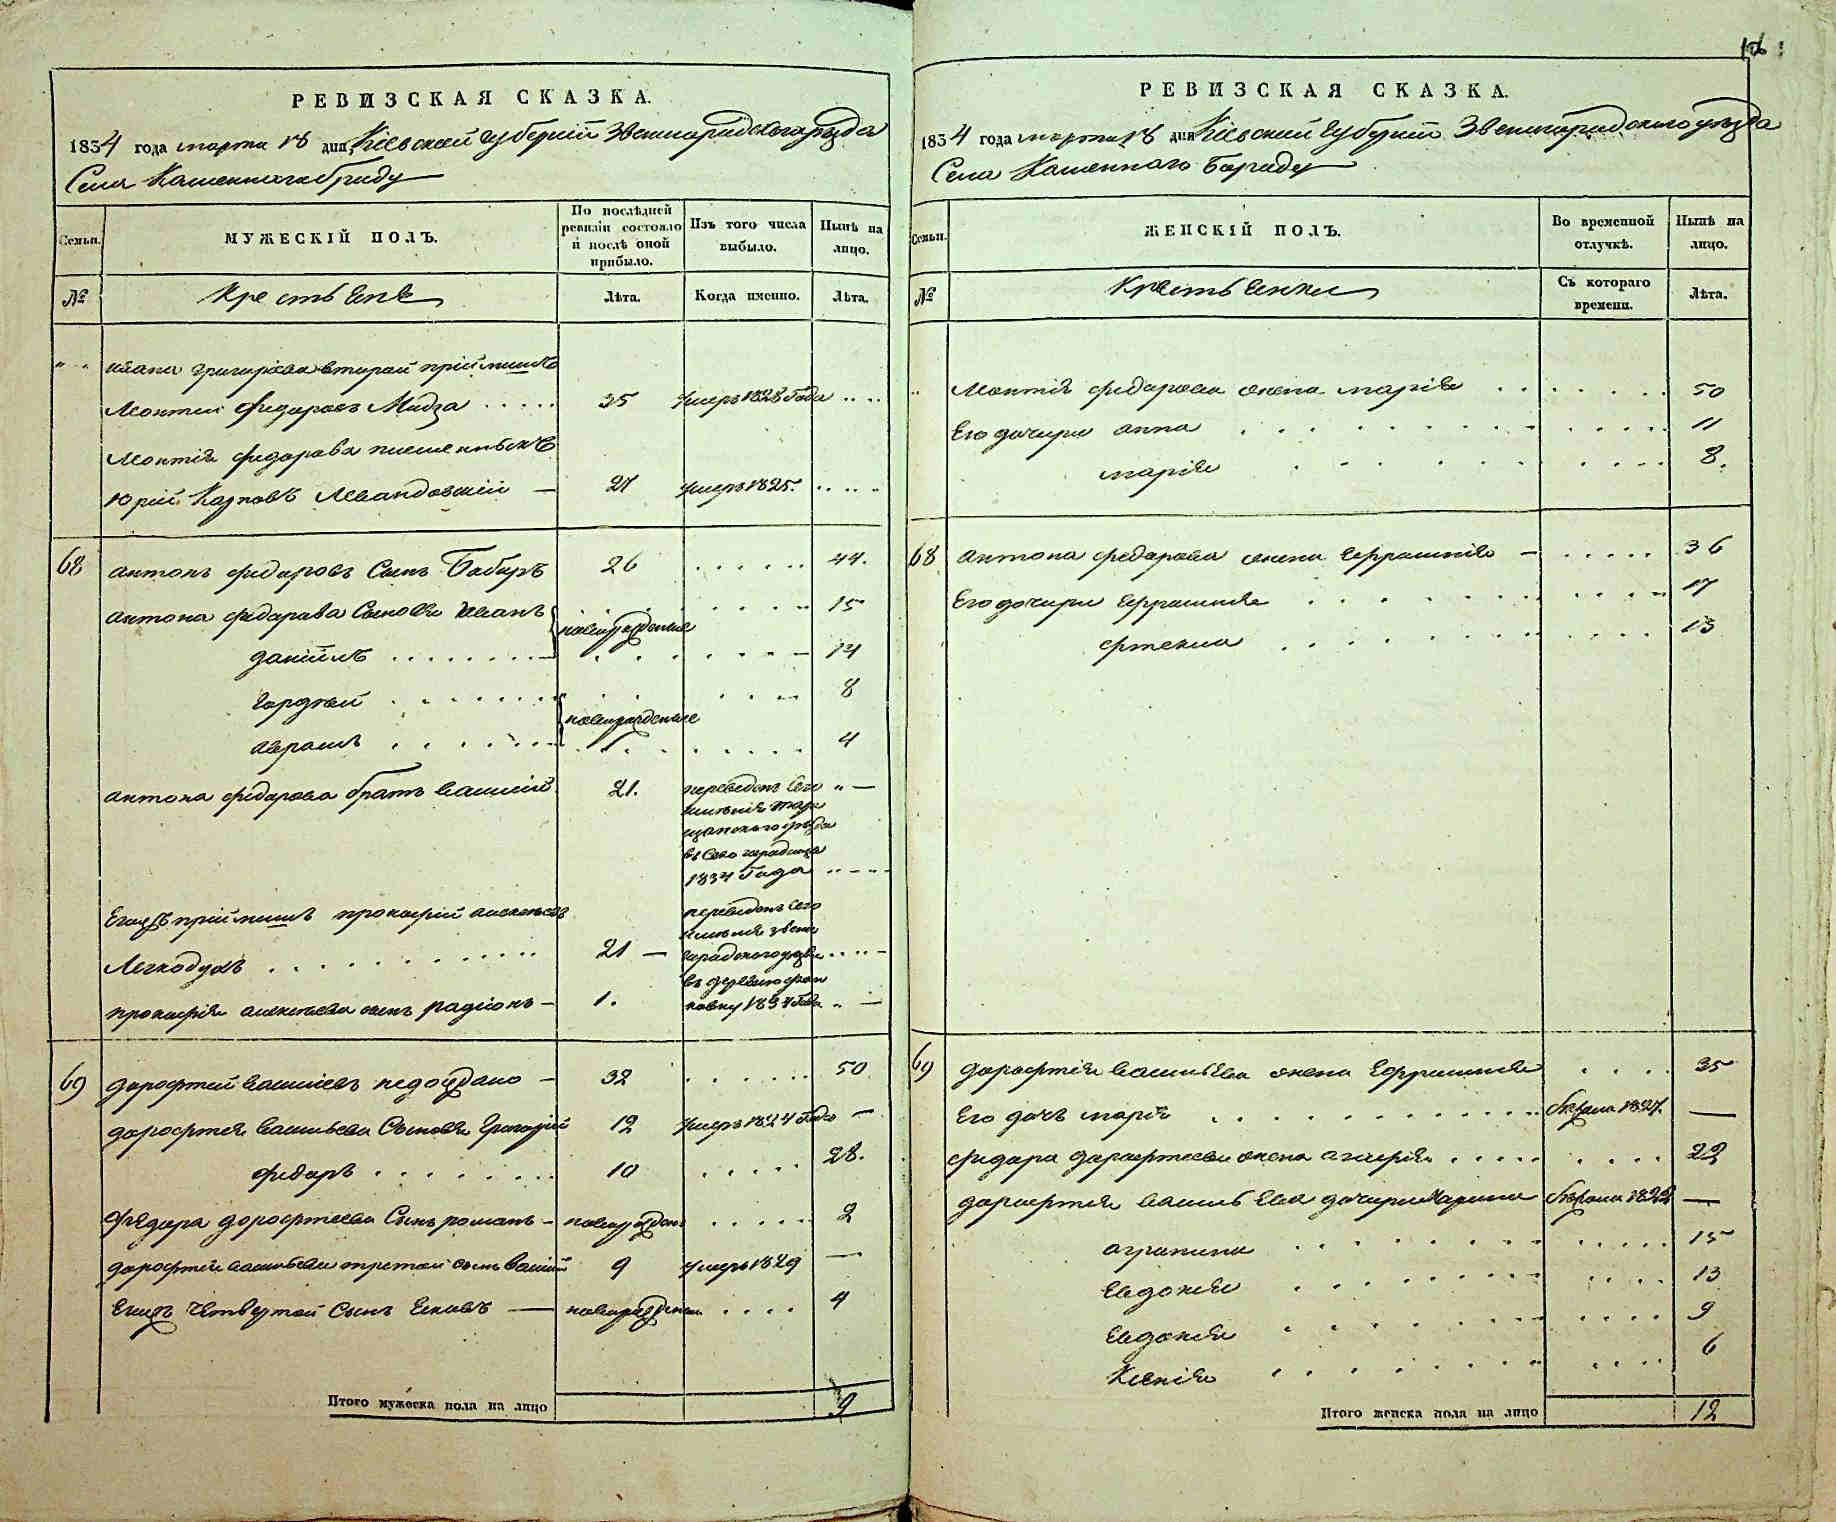 РЕВИЗСКАЯ СКАЗКА.
1834 года марта дня Кіевской губерніи Звенигородского уѣзда
Села Каменного Броду
Семьи.
МУЖЕСКІЙ ПОЛЪ.
По послѣдней ревизіи состояло и послѣ оной прибыло.
Изъ того числа выбыло.
Нынѣ на лицо.
№
Крестьяне
Лѣта.
Когда именно.
Лѣта.
" " Ивана Григорьева второй пріймишъ
Леонтій Федоровъ Мидза 35 умеръ 1828 года
Леонтія Федорова племенникъ
Юрій Карповъ Левандовскій — 27 умеръ 1825.
68 Антонъ Федоровъ Сынъ Бабыръ 26 44.
Антона Федорава Сыновья Иванъ новорожденные 15
Даніилъ 14
Гордѣй новорожденные 8
Аврамъ 4
Антона Федорова братъ Василій 21. переведенъ сего " —
имѣнія Тара
щанского уѣзда
въ село
1834 Года
Егожъ пріймишъ Прокофій Алексѣевъ переведенъ сего
имѣнія Звени
Легкодухъ 21 — городского уѣзда
въ деревню
Прокофія Алексѣева сынъ Радіонъ — 1. 1834 Года " —
69 Дорофтей Васильевъ Недоудано — 32 50
Дорофтея Васильева Сыновья Григорій 12 умеръ 1824 Года —
Федоръ 10 28.
Федора Дорофтеева Сынъ Романъ — новорожден 2
Дорофтея Васильева третій сынъ Василій 9 умеръ 1829 —
Егожъ Четвертой Сынъ Яковъ — новорожден 4
Итого мужеска пола на лицо 9
РЕВИЗСКАЯ СКАЗКА.
1834 года марта дня Кіевской Губерніи Звенигородского уѣзда
Села Каменного Броду
Семьи.
ЖЕНСКІЙ ПОЛЪ.
Во временной отлучкѣ.
Нынѣ на лицо.
№
Крестьянки
Съ котораго времени.
Лѣта.
Леонтія Федорова жена Марія 50
Его дочери Анна 11
Марія 8.
68 Антона Федорова жена Ефросинія — 36
Его дочери Ефросинія 17
13
69 Дорофтея Васильева жена Ефросинія 35
Его дочь Марія 1827. —
Федора Дорофтеева жена Агафія 22
Дорофтея Васильева дочери Марина —
Агрипина 15
Евдокія 13
Евдокія 9
Ксенія 6
Итого женска пола на лицо 12